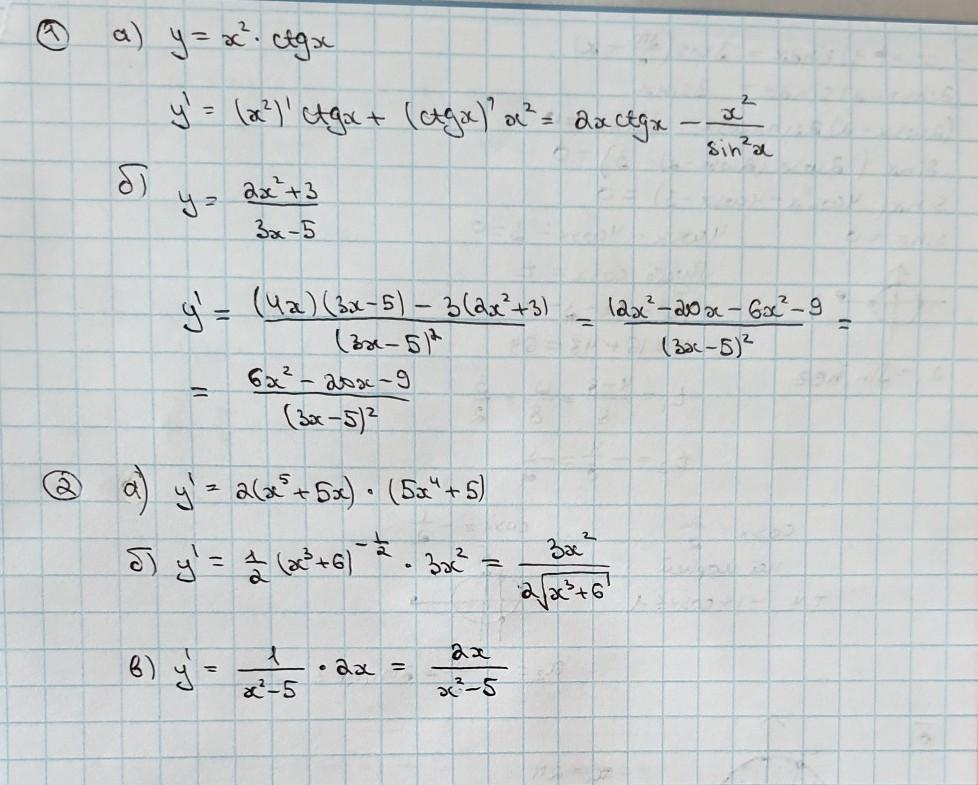 ① а) y = x² · ctgx
y' = (x²)' ctgx + (ctgx)' x² = 2x ctgx − x²/sin²x
б) y = (2x²+3)/(3x−5)
y' = ((4x)(3x−5) − 3(2x²+3))/(3x−5)² = (12x²−20x−6x²−9)/(3x−5)² =
= (6x²−20x−9)/(3x−5)²
② а) y' = 2(x⁵+5x) · (5x⁴+5)
б) y' = 1/2 (x³+6)^(−1/2) · 3x² = 3x²/(2√(x³+6))
в) y' = 1/(x²−5) · 2x = 2x/(x²−5)